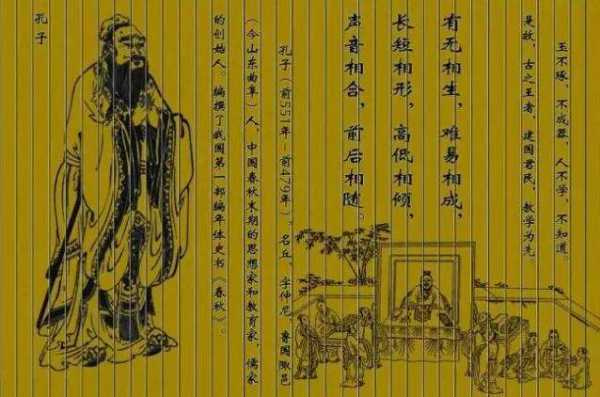 玉不琢，不成器，人不学，不知道。
是故，古之王者，建国君民，教学为先
有无相生，难易相成，
长短相形，高低相倾，
声音相合，前后相随。
孔子（前551年－前479年），名丘，字仲尼，鲁国陬邑
（今山东曲阜）人，中国春秋末期的思想家和教育家，儒家
的创始人。编撰了我国第一部编年体史书《春秋》。
孔子